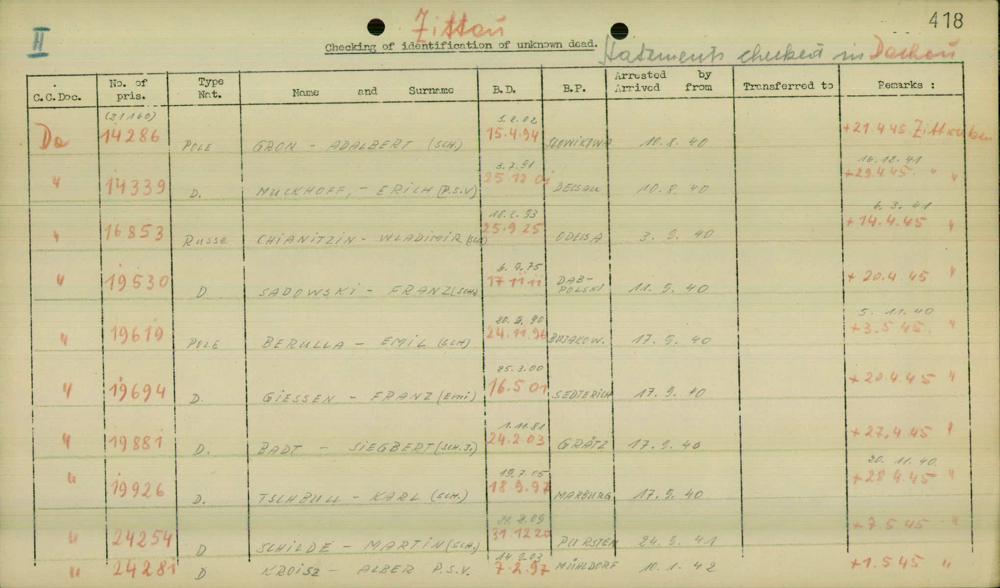 418
Zittau
H
Checking of identification of unknown dead. Statements checked in Dachau
C.C.Doc. No. of pris. Type Nat. Name and Surname B.D. B.P. Arrested by Arrived from Transferred to Remarks :
(21160) 5.2.02
Da 14286 POLE GRON - ADALBERT (SCH.) 15.4.94 SLOWIKOWA 10.8.40 +21.4.45 Zittau
3.7.91 16.12.41
" 14339 D. MUCKHOFF, - ERICH (P.S.V) 25.12.01 DESSAU 10.8.40 +29.4.45 " "
6.3.41
" 16853 RUSSE CHIANITZIN - WLADIMIR 25.9.25 ODESSA 3.9.40 +14.4.45 "
6.9.75
" 19530 D SADOWSKI - FRANZ (SCH.) 17.11.11 DAB-POLSKI 11.9.40 +20.4.45 "
20.5.90 5.11.40
" 19619 POLE BERULLA - EMIL (SCH) 24.11.96 BUJAKOW. 17.9.40 +3.5.45 "
25.3.00
" 19694 D. GIESSEN - FRANZ (Emi) 16.5.01 SEDTERICH 17.9.40 +20.4.45 "
1.11.81
" 19881 D. BADT - SIEGBERT (SCH.J.) 24.2.03 GRÄTZ 17.9.40 +27.4.45 "
19.7.05 20.11.40
" 19926 D. TSCHBULL - KARL (SCH.) 18.9.97 MARBURG 17.9.40 +28.4.45 "
" 24254 D SCHILDE - MARTIN (SCH.) 31.12.20 PURSTEN 24.5.41 +7.5.45 "
14.9.03
" 24281 D KROISZ - ALBER P.S.V. 7.2.97 MÜHLDORF 10.1.42 +1.5.45 "